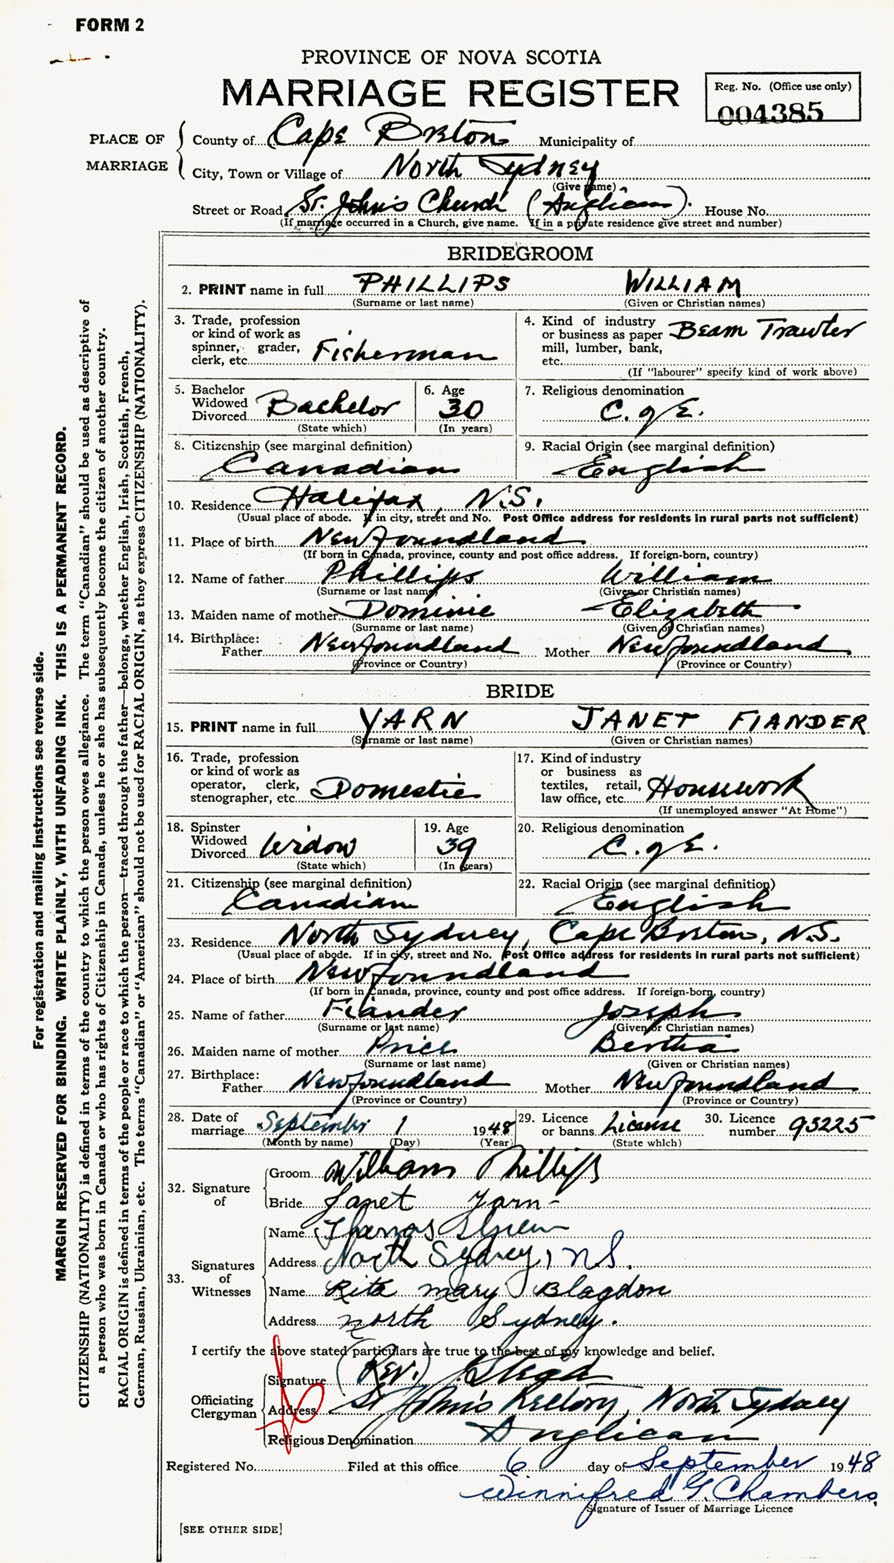 FORM 2
PROVINCE OF NOVA SCOTIA
MARRIAGE REGISTER
Reg. No. (Office use only)
004385
PLACE OF MARRIAGE
County of Cape Breton Municipality of
City, Town or Village of North Sydney
(Give name)
Street or Road St. John's Church (Anglican). House No.
(If marriage occurred in a Church, give name. If in a private residence give street and number)
BRIDEGROOM
2. PRINT name in full PHILLIPS WILLIAM
(Surname or last name) (Given or Christian names)
3. Trade, profession or kind of work as spinner, grader, clerk, etc. Fisherman
4. Kind of industry or business as paper mill, lumber, bank, etc. Beam Trawler
(If "labourer" specify kind of work above)
5. Bachelor Widowed Divorced Bachelor
(State which)
6. Age 30
(In years)
7. Religious denomination
C. of E.
8. Citizenship (see marginal definition)
Canadian
9. Racial Origin (see marginal definition)
English
10. Residence Halifax, N.S.
(Usual place of abode. If in city, street and No. Post Office address for residents in rural parts not sufficient)
11. Place of birth Newfoundland
(If born in Canada, province, county and post office address. If foreign-born, country)
12. Name of father Phillips William
(Surname or last name) (Given or Christian names)
13. Maiden name of mother Dominie Elizabeth
(Surname or last name) (Given or Christian names)
14. Birthplace: Father Newfoundland Mother Newfoundland
(Province or Country) (Province or Country)
BRIDE
15. PRINT name in full YARN JANET FIANDER
(Surname or last name) (Given or Christian names)
16. Trade, profession or kind of work as operator, clerk, stenographer, etc. Domestic
17. Kind of industry or business as textiles, retail, law office, etc. Housework
(If unemployed answer "At Home")
18. Spinster Widowed Divorced Widow
(State which)
19. Age 39
(In years)
20. Religious denomination
C. of E.
21. Citizenship (see marginal definition)
Canadian
22. Racial Origin (see marginal definition)
English
23. Residence North Sydney, Cape Breton, N.S.
(Usual place of abode. If in city, street and No. Post Office address for residents in rural parts not sufficient)
24. Place of birth Newfoundland
(If born in Canada, province, county and post office address. If foreign-born, country)
25. Name of father Fiander Joseph
(Surname or last name) (Given or Christian names)
26. Maiden name of mother Price Bertha
(Surname or last name) (Given or Christian names)
27. Birthplace: Father Newfoundland Mother Newfoundland
(Province or Country) (Province or Country)
28. Date of marriage September 1 1948
(Month by name) (Day) (Year)
29. Licence or banns License
(State which)
30. Licence number 93225
32. Signature of
Groom William Phillips
Bride Janet Yarn
33. Signatures of Witnesses
Name Thomas
Address North Sydney, N.S.
Name Rita Mary Blagdon
Address North Sydney.
I certify the above stated particulars are true to the best of my knowledge and belief.
Officiating Clergyman
Signature (Rev.)
Address St John's Rectory, North Sydney
Religious Denomination Anglican
Registered No. Filed at this office 6 day of September 1948
Winnifred G. Chambers.
Signature of Issuer of Marriage Licence
[SEE OTHER SIDE]
For registration and mailing instructions see reverse side.
MARGIN RESERVED FOR BINDING. WRITE PLAINLY, WITH UNFADING INK. THIS IS A PERMANENT RECORD.
CITIZENSHIP (NATIONALITY) is defined in terms of the country to which the person owes allegiance. The term "Canadian" should be used as descriptive of
a person who was born in Canada or who has rights of Citizenship in Canada, unless he or she has subsequently become the citizen of another country.
RACIAL ORIGIN is defined in terms of the people or race to which the person—traced through the father—belongs, whether English, Irish, Scottish, French,
German, Russian, Ukrainian, etc. The terms "Canadian" or "American" should not be used for RACIAL ORIGIN, as they express CITIZENSHIP (NATIONALITY).